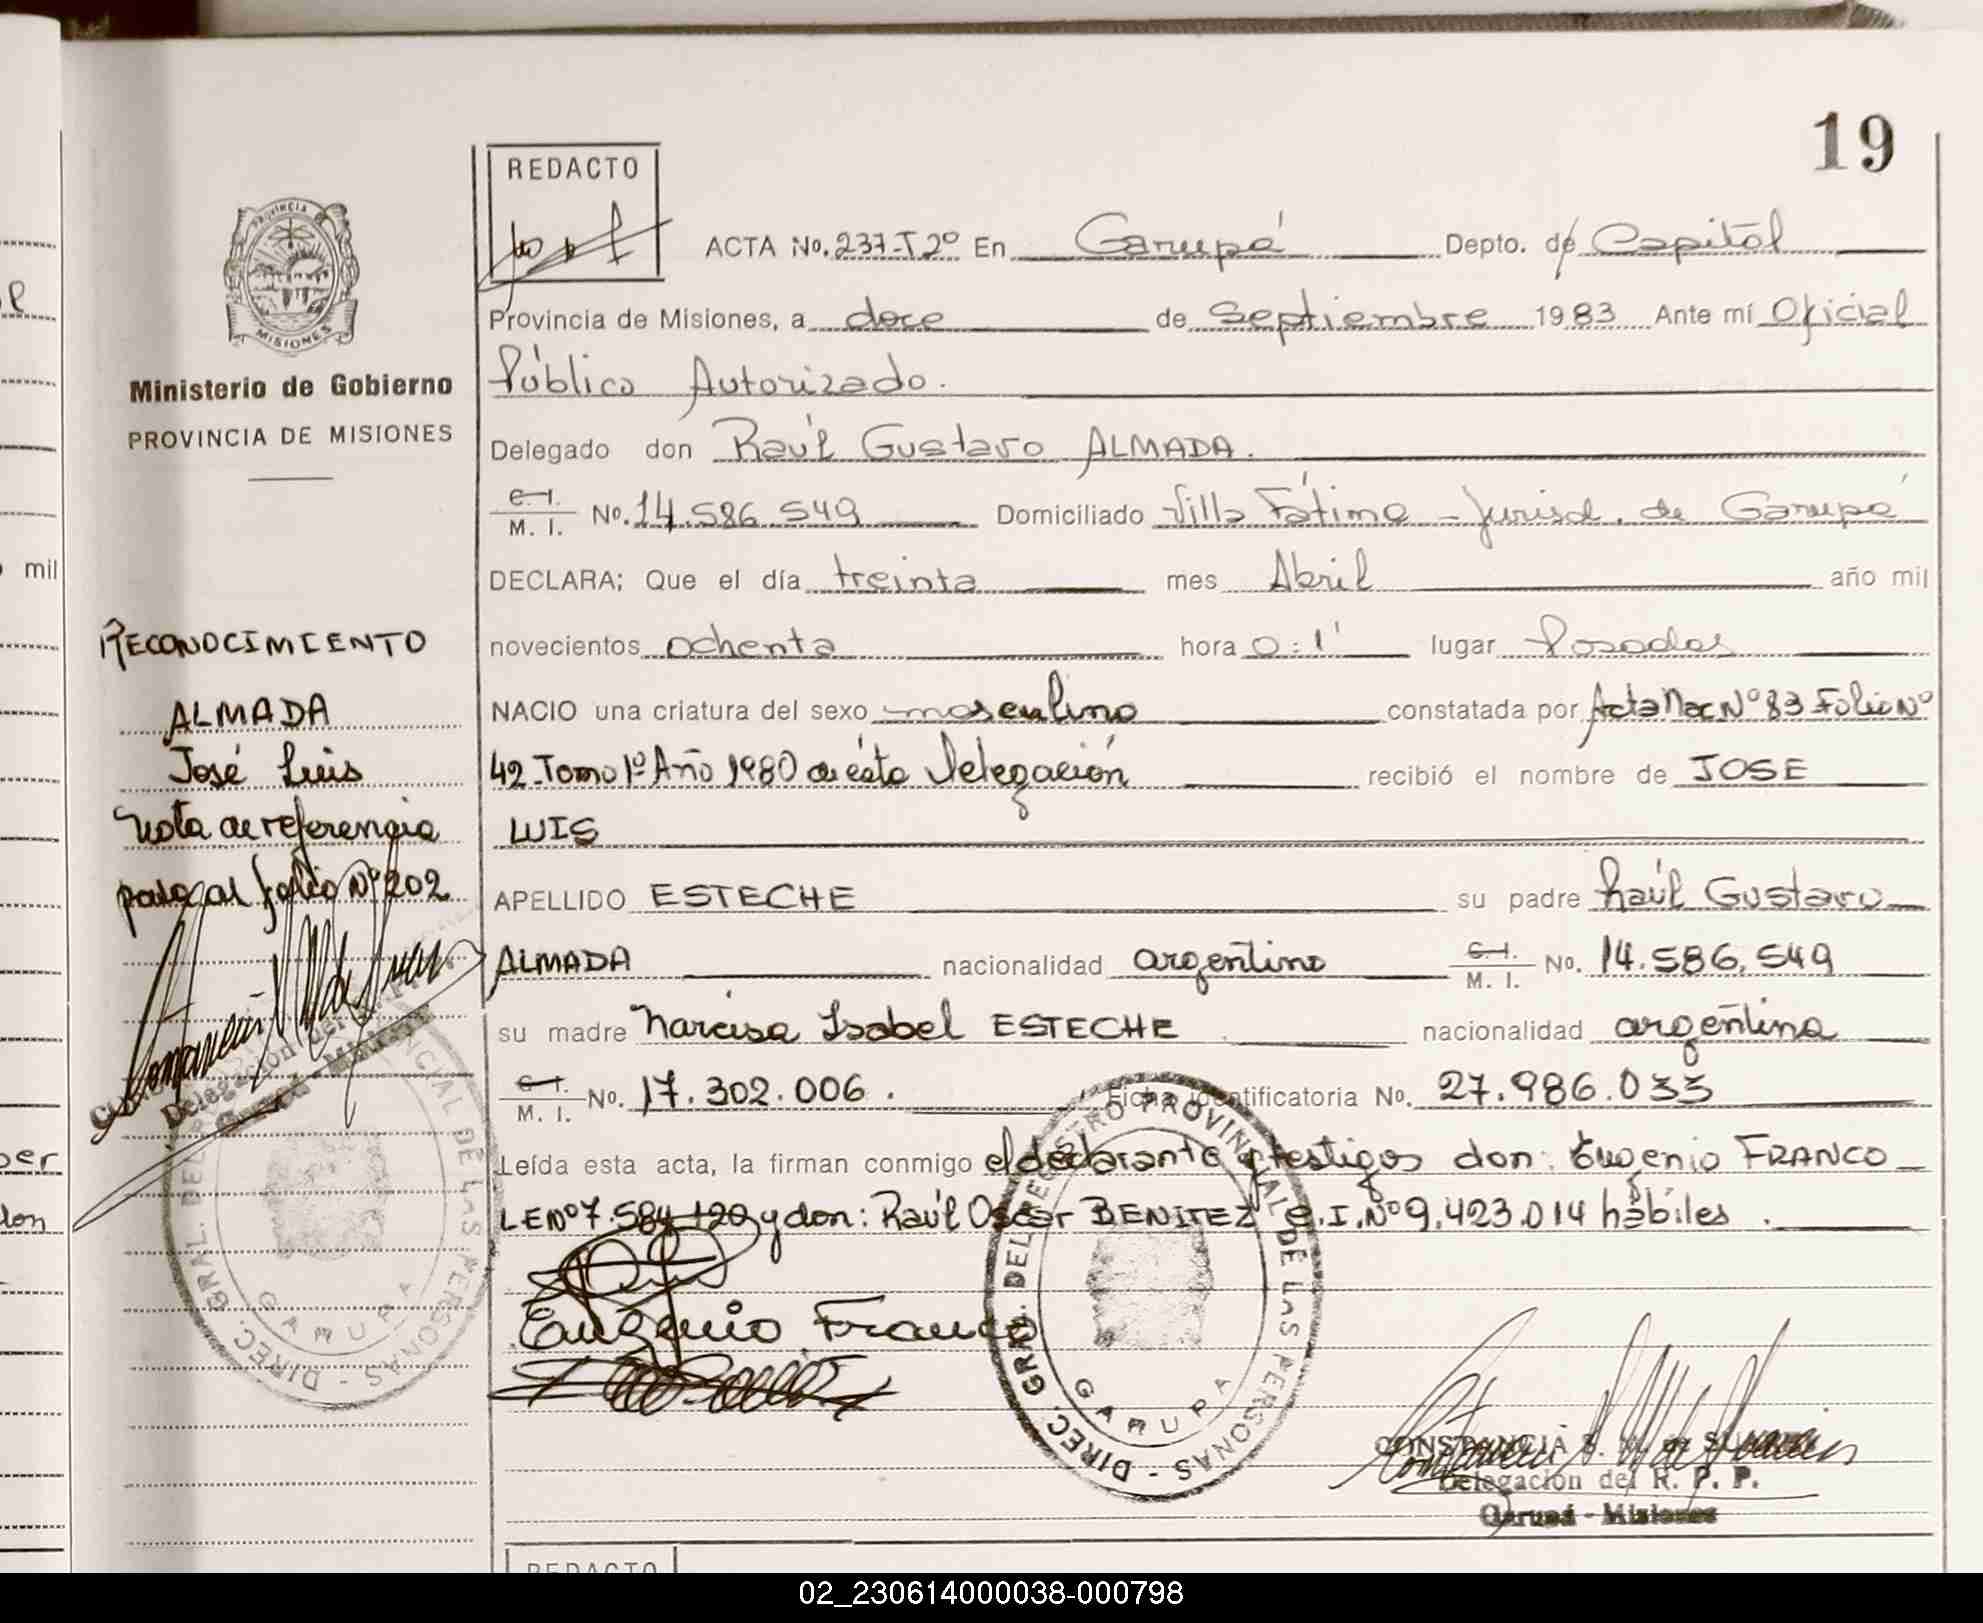 19
REDACTO
PROVINCIA
MISIONES
Ministerio de Gobierno
PROVINCIA DE MISIONES
RECONOCIMIENTO
ALMADA
José Luis
Nota de referencia
pasa al folio Nº 202
Delegación del
DIREC. GRAL. DEL REGISTRO PROVINCIAL DE LAS PERSONAS -
GARUPA
ACTA No. 237-T2º En Garupá Depto. de Capital
Provincia de Misiones, a doce de Septiembre 1983 Ante mí Oficial
Público Autorizado.
Delegado don Raúl Gustavo ALMADA.
C. I. / M. I. No. 14.586.549 Domiciliado Villa Fátima - Jurisd. de Garupá
DECLARA; Que el día treinta mes Abril año mil
novecientos ochenta hora 0:1' lugar Posadas
NACIO una criatura del sexo masculino constatada por Acta Nac Nº 83 Folio Nº
42-Tomo 1º Año 1980 de ésta Delegación recibió el nombre de JOSE
LUIS
APELLIDO ESTECHE su padre Raúl Gustavo
ALMADA nacionalidad argentino C. I. / M. I. No. 14.586.549
su madre Narcisa Isabel ESTECHE nacionalidad argentina
C. I. / M. I. No. 17.302.006. Ficha identificatoria No. 27.986.033
Leída esta acta, la firman conmigo el declarante y testigos don: Eugenio FRANCO
LE Nº 7.584.120 y don: Raúl Oscar BENITEZ C.I. Nº 9.423.014 hábiles.
Eugenio Franco
DIREC. GRAL. DEL REGISTRO PROVINCIAL DE LAS PERSONAS -
GARUPA
CONSTANCIA S. M. de
Delegación del R. P. P.
Garupá - Misiones
REDACTO
mil
02_230614000038-000798